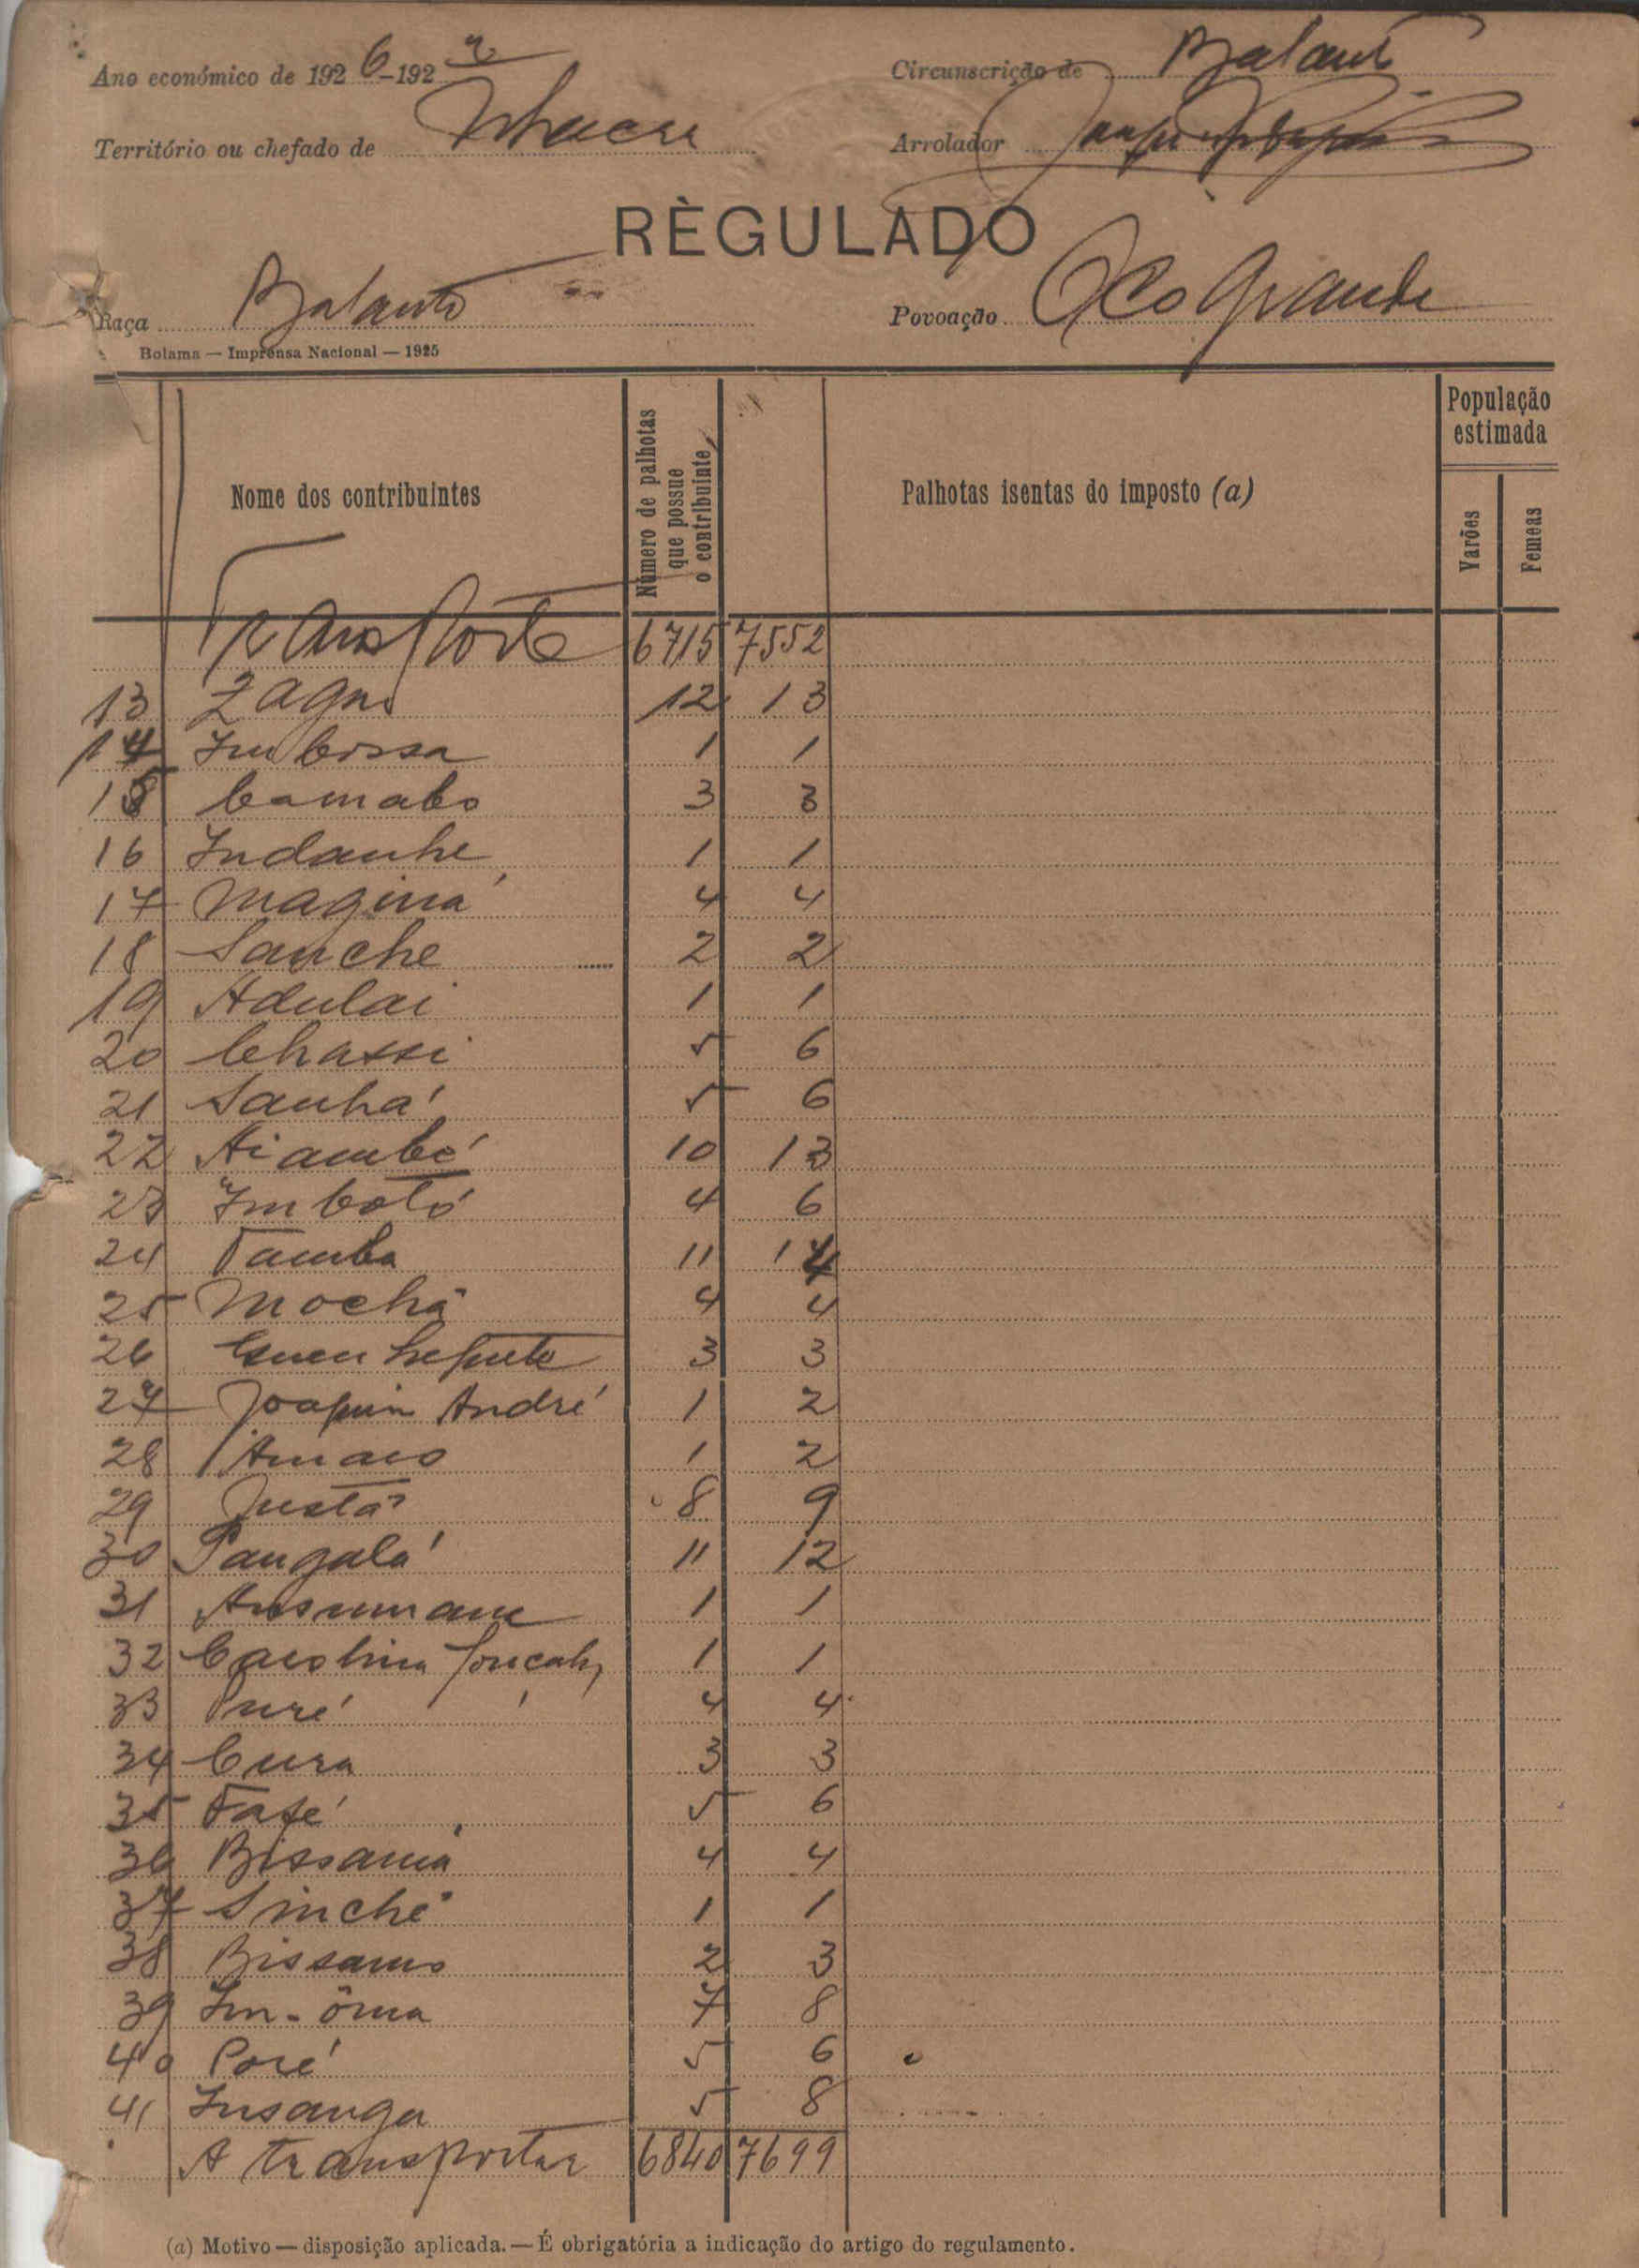 Ano económico de 1926-192 Circunscrição de
Território ou chefado de Arrolador
RÈGULADO
Raça Balanto Povoação Grande
Bolama — Imprensa Nacional — 1925
Nome dos contribuintes Número de palhotas que possue o contribuinte Palhotas isentas do imposto (a) População estimada Varões Femeas
Transporte 6715 7552
13 Zagno 12 13
14 Imbossa 1 1
15 Camabo 3 3
16 Indanhe 1 1
17 Maginá 4 4
18 Sanche 2 2
19 Adulai 1 1
20 Chassi 5 6
21 Sanhá 5 6
22 Aiambé 10 13
23 Imbotó 4 6
24 Tamba 11 14
25 Mochã 4 4
26 3 3
27 Joaquim André 1 2
28 1 2
29 Justa 8 9
30 Pangalá 11 12
31 Ansumane 1 1
32 Carolina 1 1
33 Puré 4 4
34 Cura 3 3
35 Fafé 5 6
36 Bissamá 4 4
37 Sinché 1 1
38 2 3
39 In-ôma 7 8
40 Poré 5 6
41 Insanga 5 8
A transportar 6840 7699
(a) Motivo — disposição aplicada. — É obrigatória a indicação do artigo do regulamento.